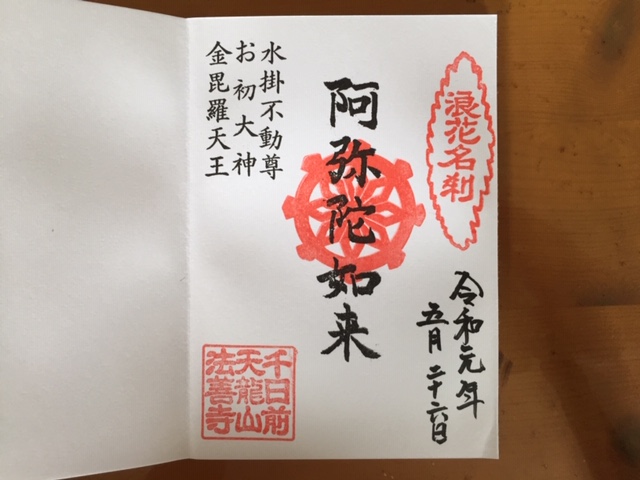 浪花名刹
令和元年
五月二十六日
阿弥陀如来
水掛不動尊
お初大神
金毘羅天王
千日前
天龍山
法善寺